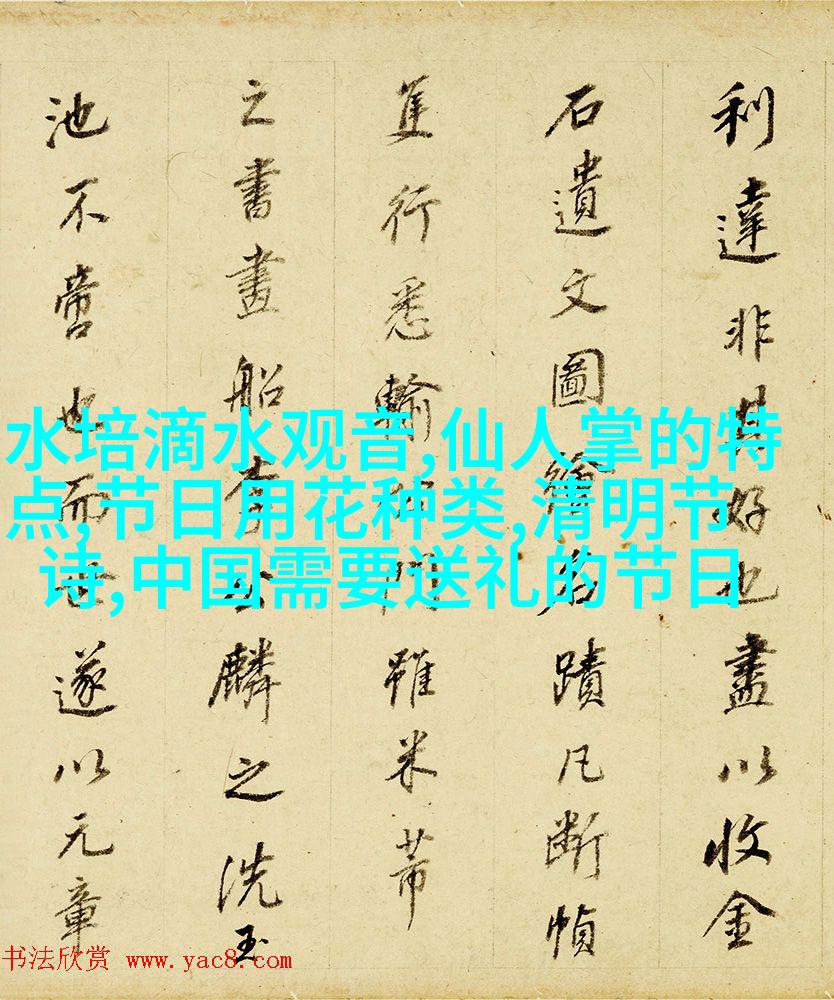 利達非其好也盡以收金
石遺文圖繪名蹟凡斷幀
隻行悉輸門雖米芾
之書畫船李公麟之洗玉
池不啻也而世遂以元章
水培滴水观音,仙人掌的特
点,节日用花种类,清明节
诗,中国需要送礼的节日
书法欣赏 www.yac8.com